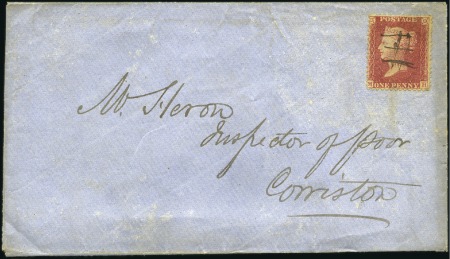 POSTAGE
ONE PENNY
Mr. Heron
Inspector of poor
Corriston